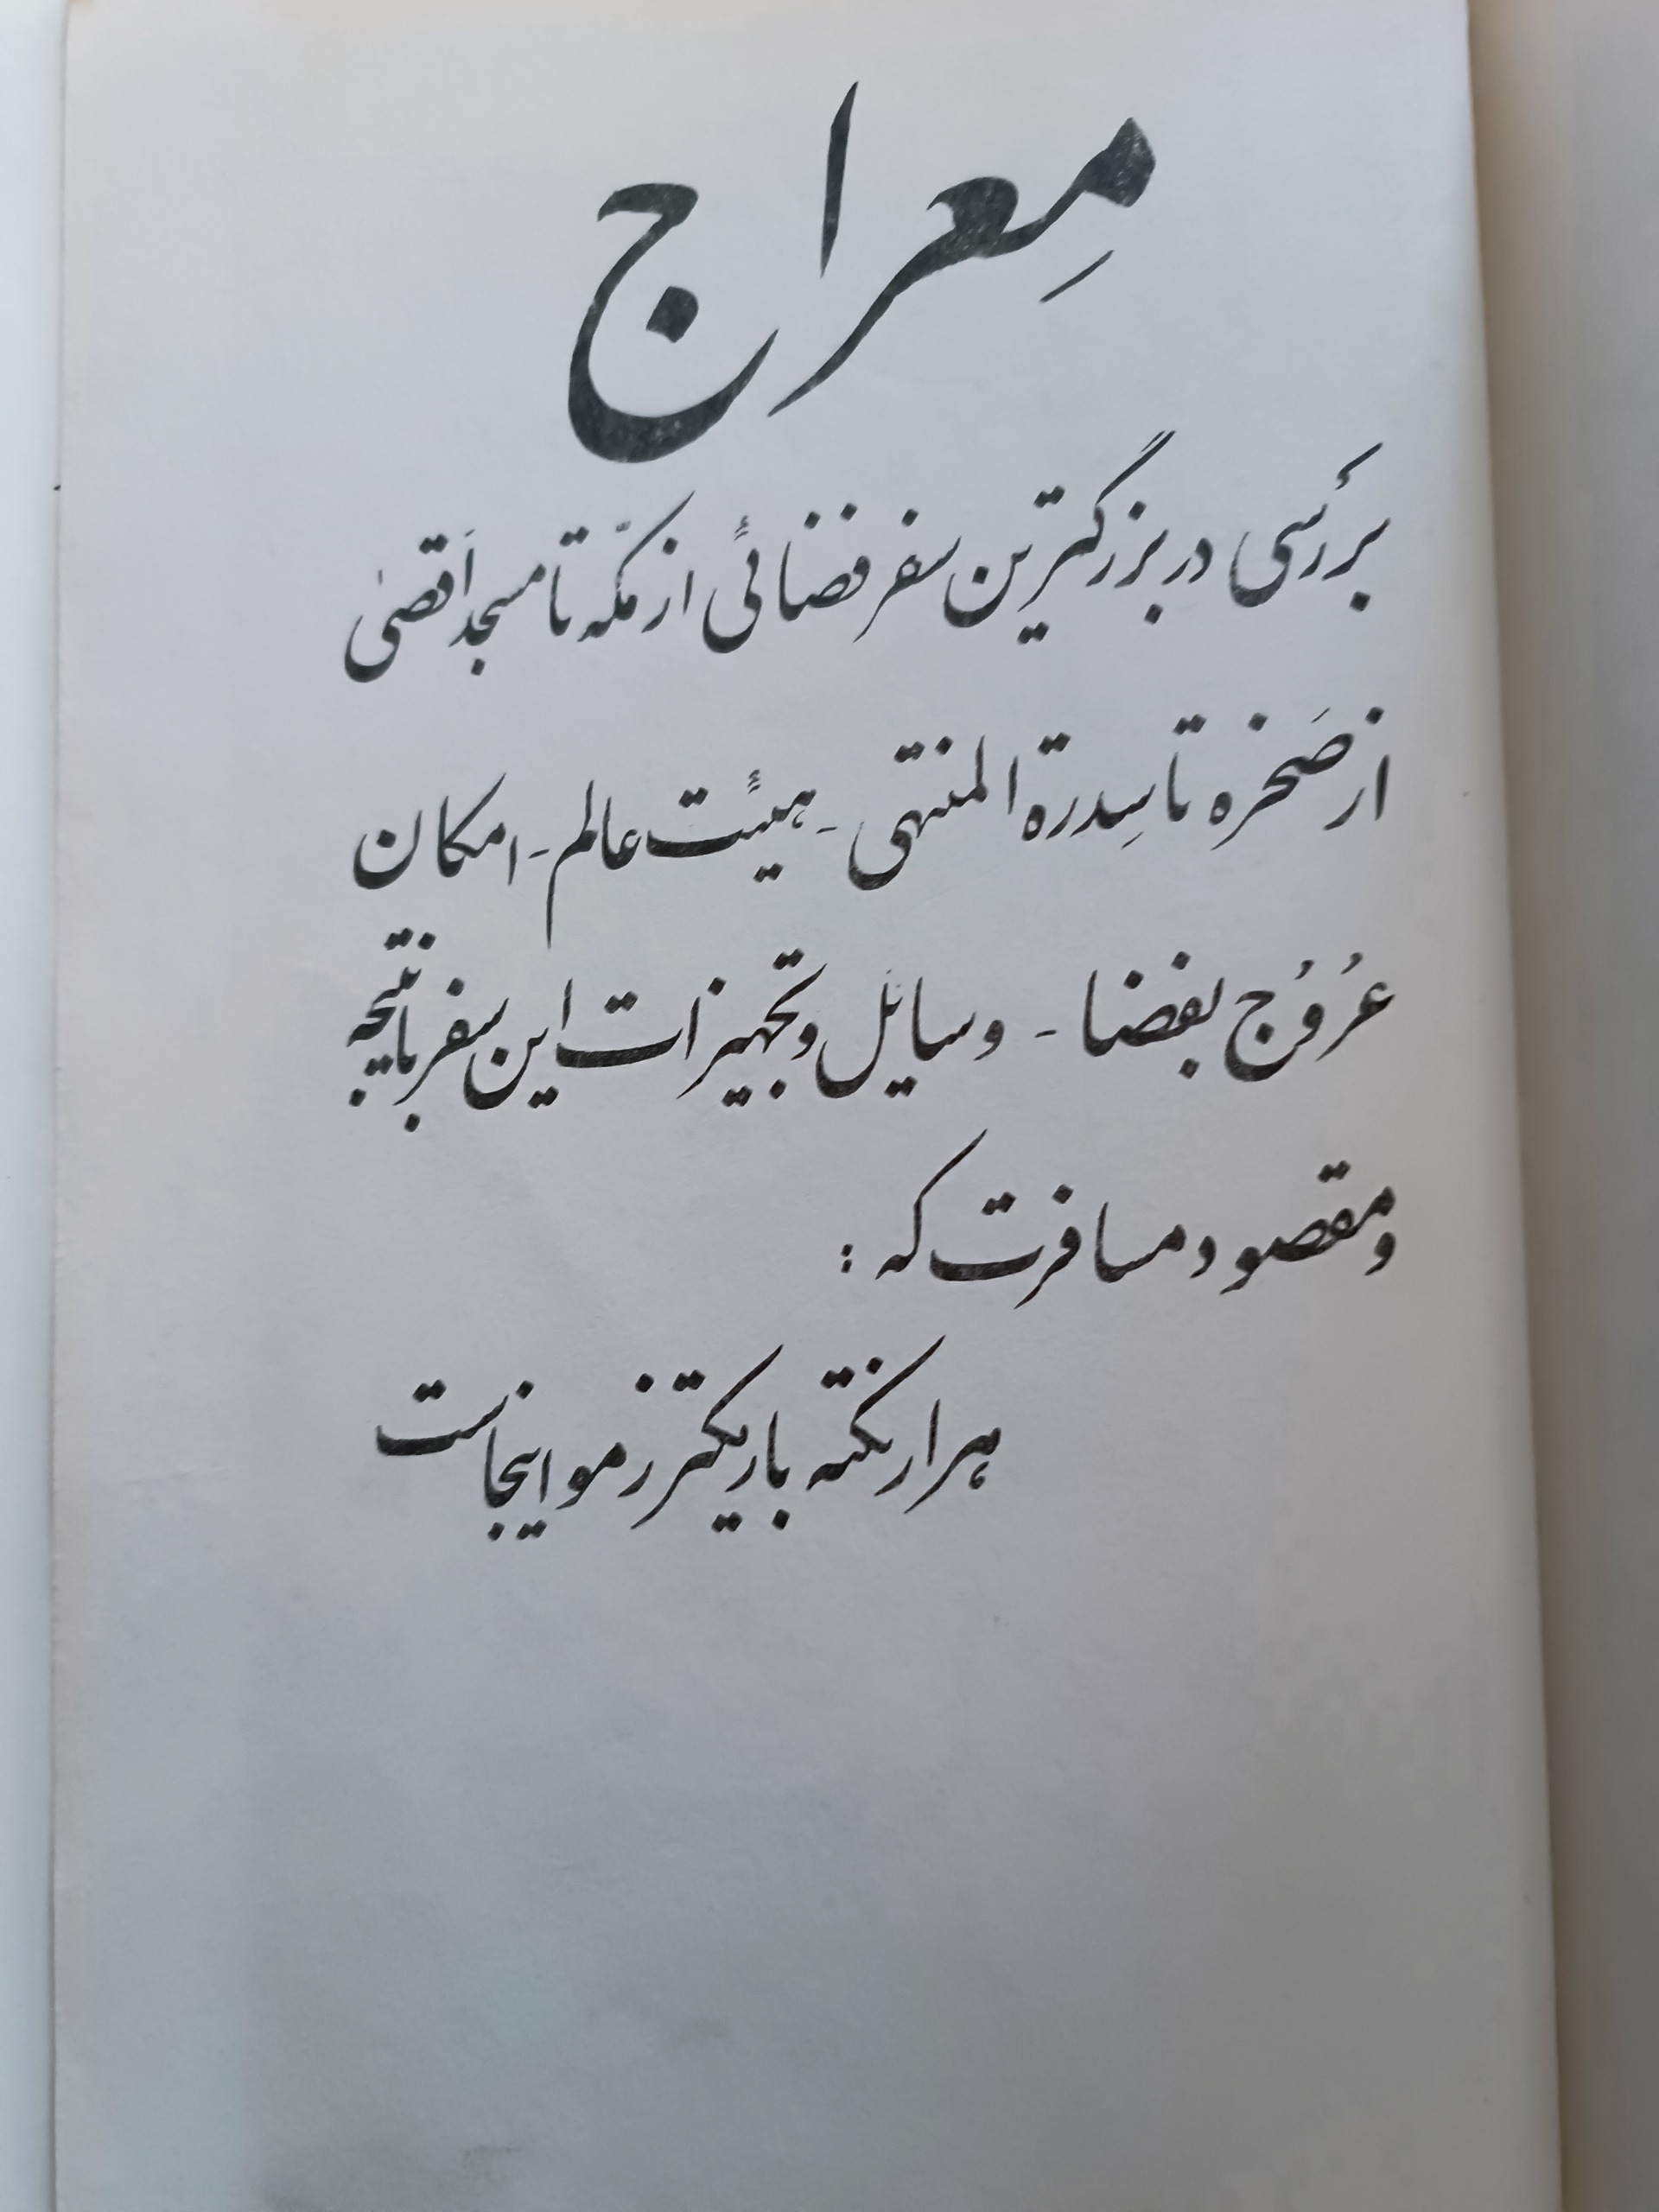 مِعراج
بررَسی در بزرگترین سفر فضائی از مکّه تا مسجد اَقصیٰ
از صَخره تا سِدرة المنتهی - هیئت عالم - امکان
عُرُوج بفضا - وسائل و تجهیزات این سفر با نتیجه
و مقصود مسافرت که :
هزار نکته باریکتر ز مو اینجاست